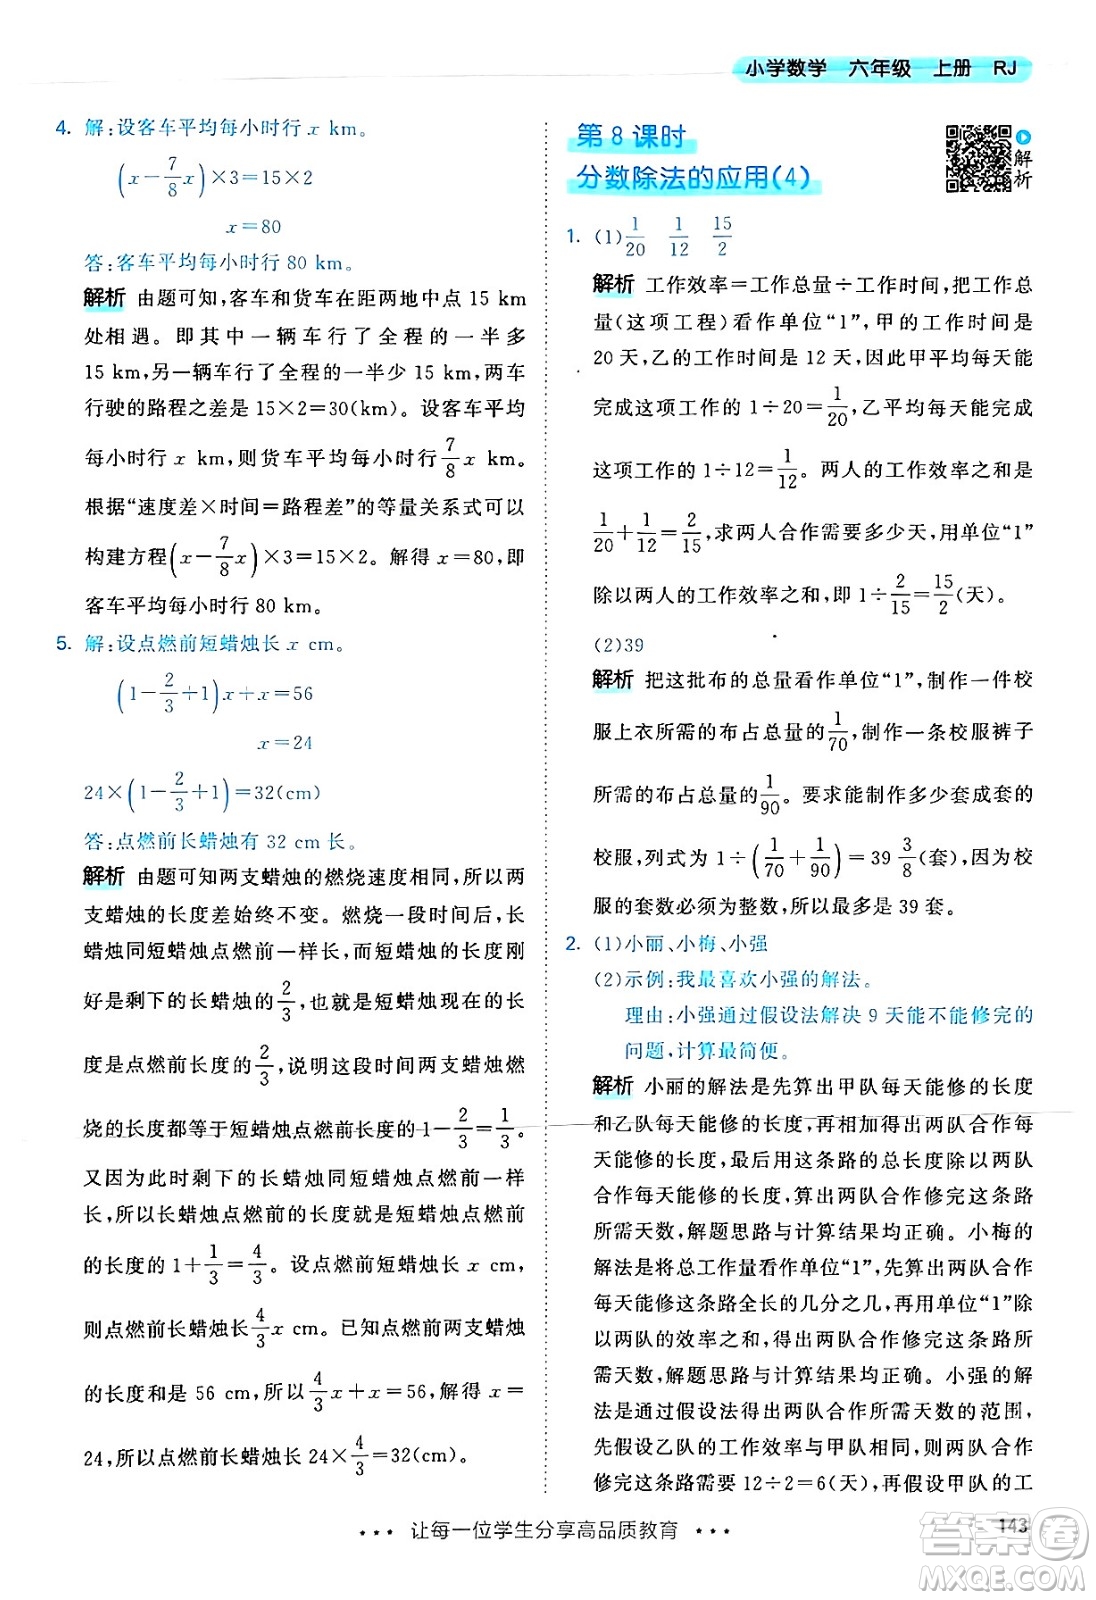 小学数学 六年级 上册 RJ
4. 解:设客车平均每小时行 x km。
(x－7/8x)×3＝15×2
x＝80
答:客车平均每小时行 80 km。
解析 由题可知,客车和货车在距两地中点 15 km
处相遇。即其中一辆车行了全程的一半多
15 km,另一辆车行了全程的一半少 15 km,两车
行驶的路程之差是 15×2＝30(km)。设客车平均
每小时行 x km,则货车平均每小时行7/8x km。
根据“速度差×时间＝路程差”的等量关系式可以
构建方程(x－7/8x)×3＝15×2。解得 x＝80,即
客车平均每小时行 80 km。
5. 解:设点燃前短蜡烛长 x cm。
(1－2/3＋1)x＋x＝56
x＝24
24×(1－2/3＋1)＝32(cm)
答:点燃前长蜡烛有 32 cm 长。
解析 由题可知两支蜡烛的燃烧速度相同,所以两
支蜡烛的长度差始终不变。燃烧一段时间后,长
蜡烛同短蜡烛点燃前一样长,而短蜡烛的长度刚
好是剩下的长蜡烛的2/3,也就是短蜡烛现在的长
度是点燃前长度的2/3,说明这段时间两支蜡烛燃
烧的长度都等于短蜡烛点燃前长度的1－2/3＝1/3。
又因为此时剩下的长蜡烛同短蜡烛点燃前一样
长,所以长蜡烛点燃前的长度就是短蜡烛点燃前
的长度的 1＋1/3＝4/3。设点燃前短蜡烛长 x cm,
则点燃前长蜡烛长4/3x cm。已知点燃前两支蜡烛
的长度和是 56 cm,所以4/3x＋x＝56,解得 x＝
24,所以点燃前长蜡烛长 24×4/3＝32(cm)。
第 8 课时
分数除法的应用(4)
解析
1. (1)1/20 1/12 15/2
解析 工作效率＝工作总量÷工作时间,把工作总
量(这项工程)看作单位“1”,甲的工作时间是
20 天,乙的工作时间是 12 天,因此甲平均每天能
完成这项工作的 1÷20＝1/20,乙平均每天能完成
这项工作的 1÷12＝1/12。两人的工作效率之和是
1/20＋1/12＝2/15,求两人合作需要多少天,用单位“1”
除以两人的工作效率之和,即 1÷2/15＝15/2(天)。
(2)39
解析 把这批布的总量看作单位“1”,制作一件校
服上衣所需的布占总量的1/70,制作一条校服裤子
所需的布占总量的1/90。要求能制作多少套成套的
校服,列式为 1÷(1/70＋1/90)＝39 3/8(套),因为校
服的套数必须为整数,所以是 39 套。
2. (1)小丽、小梅、小强
(2)示例:我最喜欢小强的解法。
理由:小强通过假设法解决 9 天能不能修完的
问题,计算最简便。
解析 小丽的解法是先算出甲队每天能修的长度
和乙队每天能修的长度,再相加得出两队合作每
天能修的长度,最后用这条路的总长度除以两队
合作每天能修的长度,算出两队合作修完这条路
所需天数,解题思路与计算结果均正确。小梅的
解法是将总工作量看作单位“1”,先算出两队合作
每天能修这条路全长的几分之几,再用单位“1”除
以两队的效率之和,得出两队合作修完这条路所
需天数,解题思路与计算结果均正确。小强的解
法是通过假设法得出两队合作所需天数的范围,
先假设乙队的工作效率与甲队一样,则两队合作
修完这条路需要 12÷2＝6(天),再假设甲队的工
让每一位学生分享高品质教育
143
答案圈
MXQE.COM